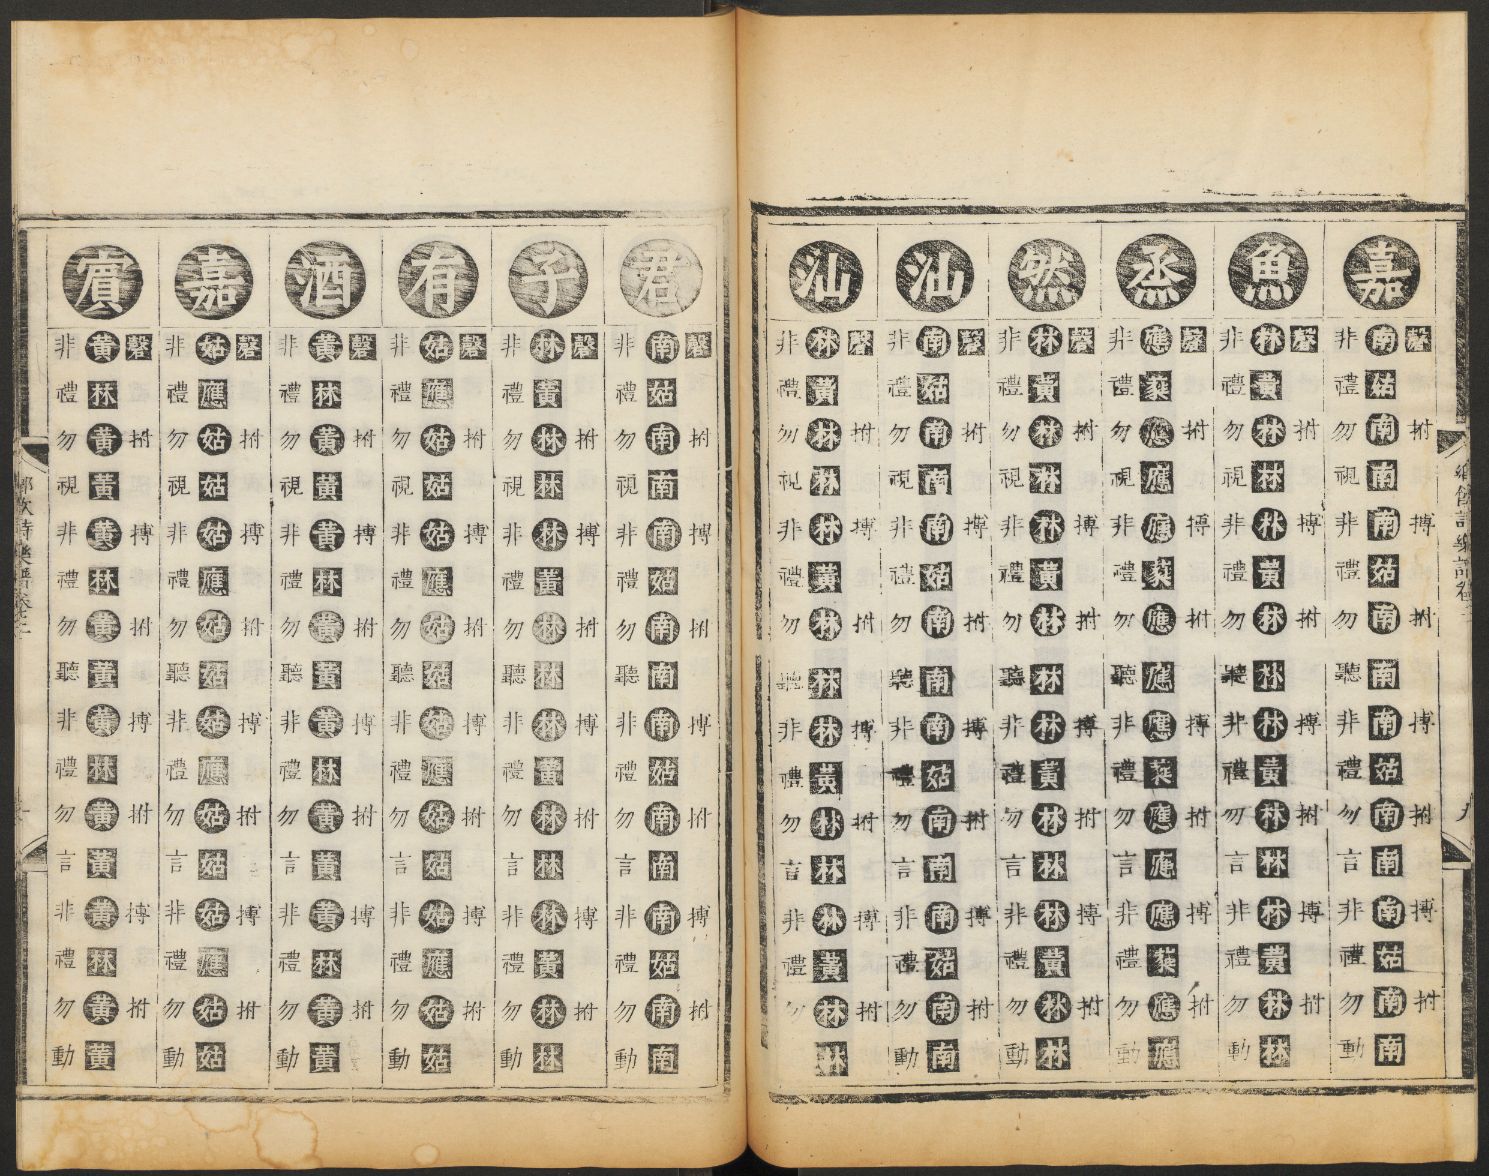 鄉飲詩樂譜卷二
九
嘉
磬拊搏拊搏拊搏拊
南姑南南南姑南南南姑南南南姑南南
非禮勿視非禮勿聽非禮勿言非禮勿動
魚
磬拊搏拊搏拊搏拊
林黃林林林黃林林林黃林林林黃林林
非禮勿視非禮勿聽非禮勿言非禮勿動
烝
磬拊搏拊搏拊搏拊
應蕤應應應蕤應應應蕤應應應蕤應應
非禮勿視非禮勿聽非禮勿言非禮勿動
然
磬拊搏拊搏拊搏拊
林黃林林林黃林林林黃林林林黃林林
非禮勿視非禮勿聽非禮勿言非禮勿動
汕
磬拊搏拊搏拊搏拊
南姑南南南姑南南南姑南南南姑南南
非禮勿視非禮勿聽非禮勿言非禮勿動
汕
磬拊搏拊搏拊搏拊
林黃林林林黃林林林黃林林林黃林林
非禮勿視非禮勿聽非禮勿言非禮勿
君
磬拊搏拊搏拊搏拊
南姑南南南姑南南南姑南南南姑南南
非禮勿視非禮勿聽非禮勿言非禮勿動
子
磬拊搏拊搏拊搏拊
林黃林林林黃林林林黃林林林黃林林
非禮勿視非禮勿聽非禮勿言非禮勿動
有
磬拊搏拊搏拊搏拊
姑應姑姑姑應姑姑姑應姑姑姑應姑姑
非禮勿視非禮勿聽非禮勿言非禮勿動
酒
磬拊搏拊搏拊搏拊
黃林黃黃黃林黃黃黃林黃黃黃林黃黃
非禮勿視非禮勿聽非禮勿言非禮勿動
嘉
磬拊搏拊搏拊搏拊
姑應姑姑姑應姑姑姑應姑姑姑應姑姑
非禮勿視非禮勿聽非禮勿言非禮勿動
賓
磬拊搏拊搏拊搏拊
黃林黃黃黃林黃黃黃林黃黃黃林黃黃
非禮勿視非禮勿聽非禮勿言非禮勿動
鄉飲詩樂譜卷二